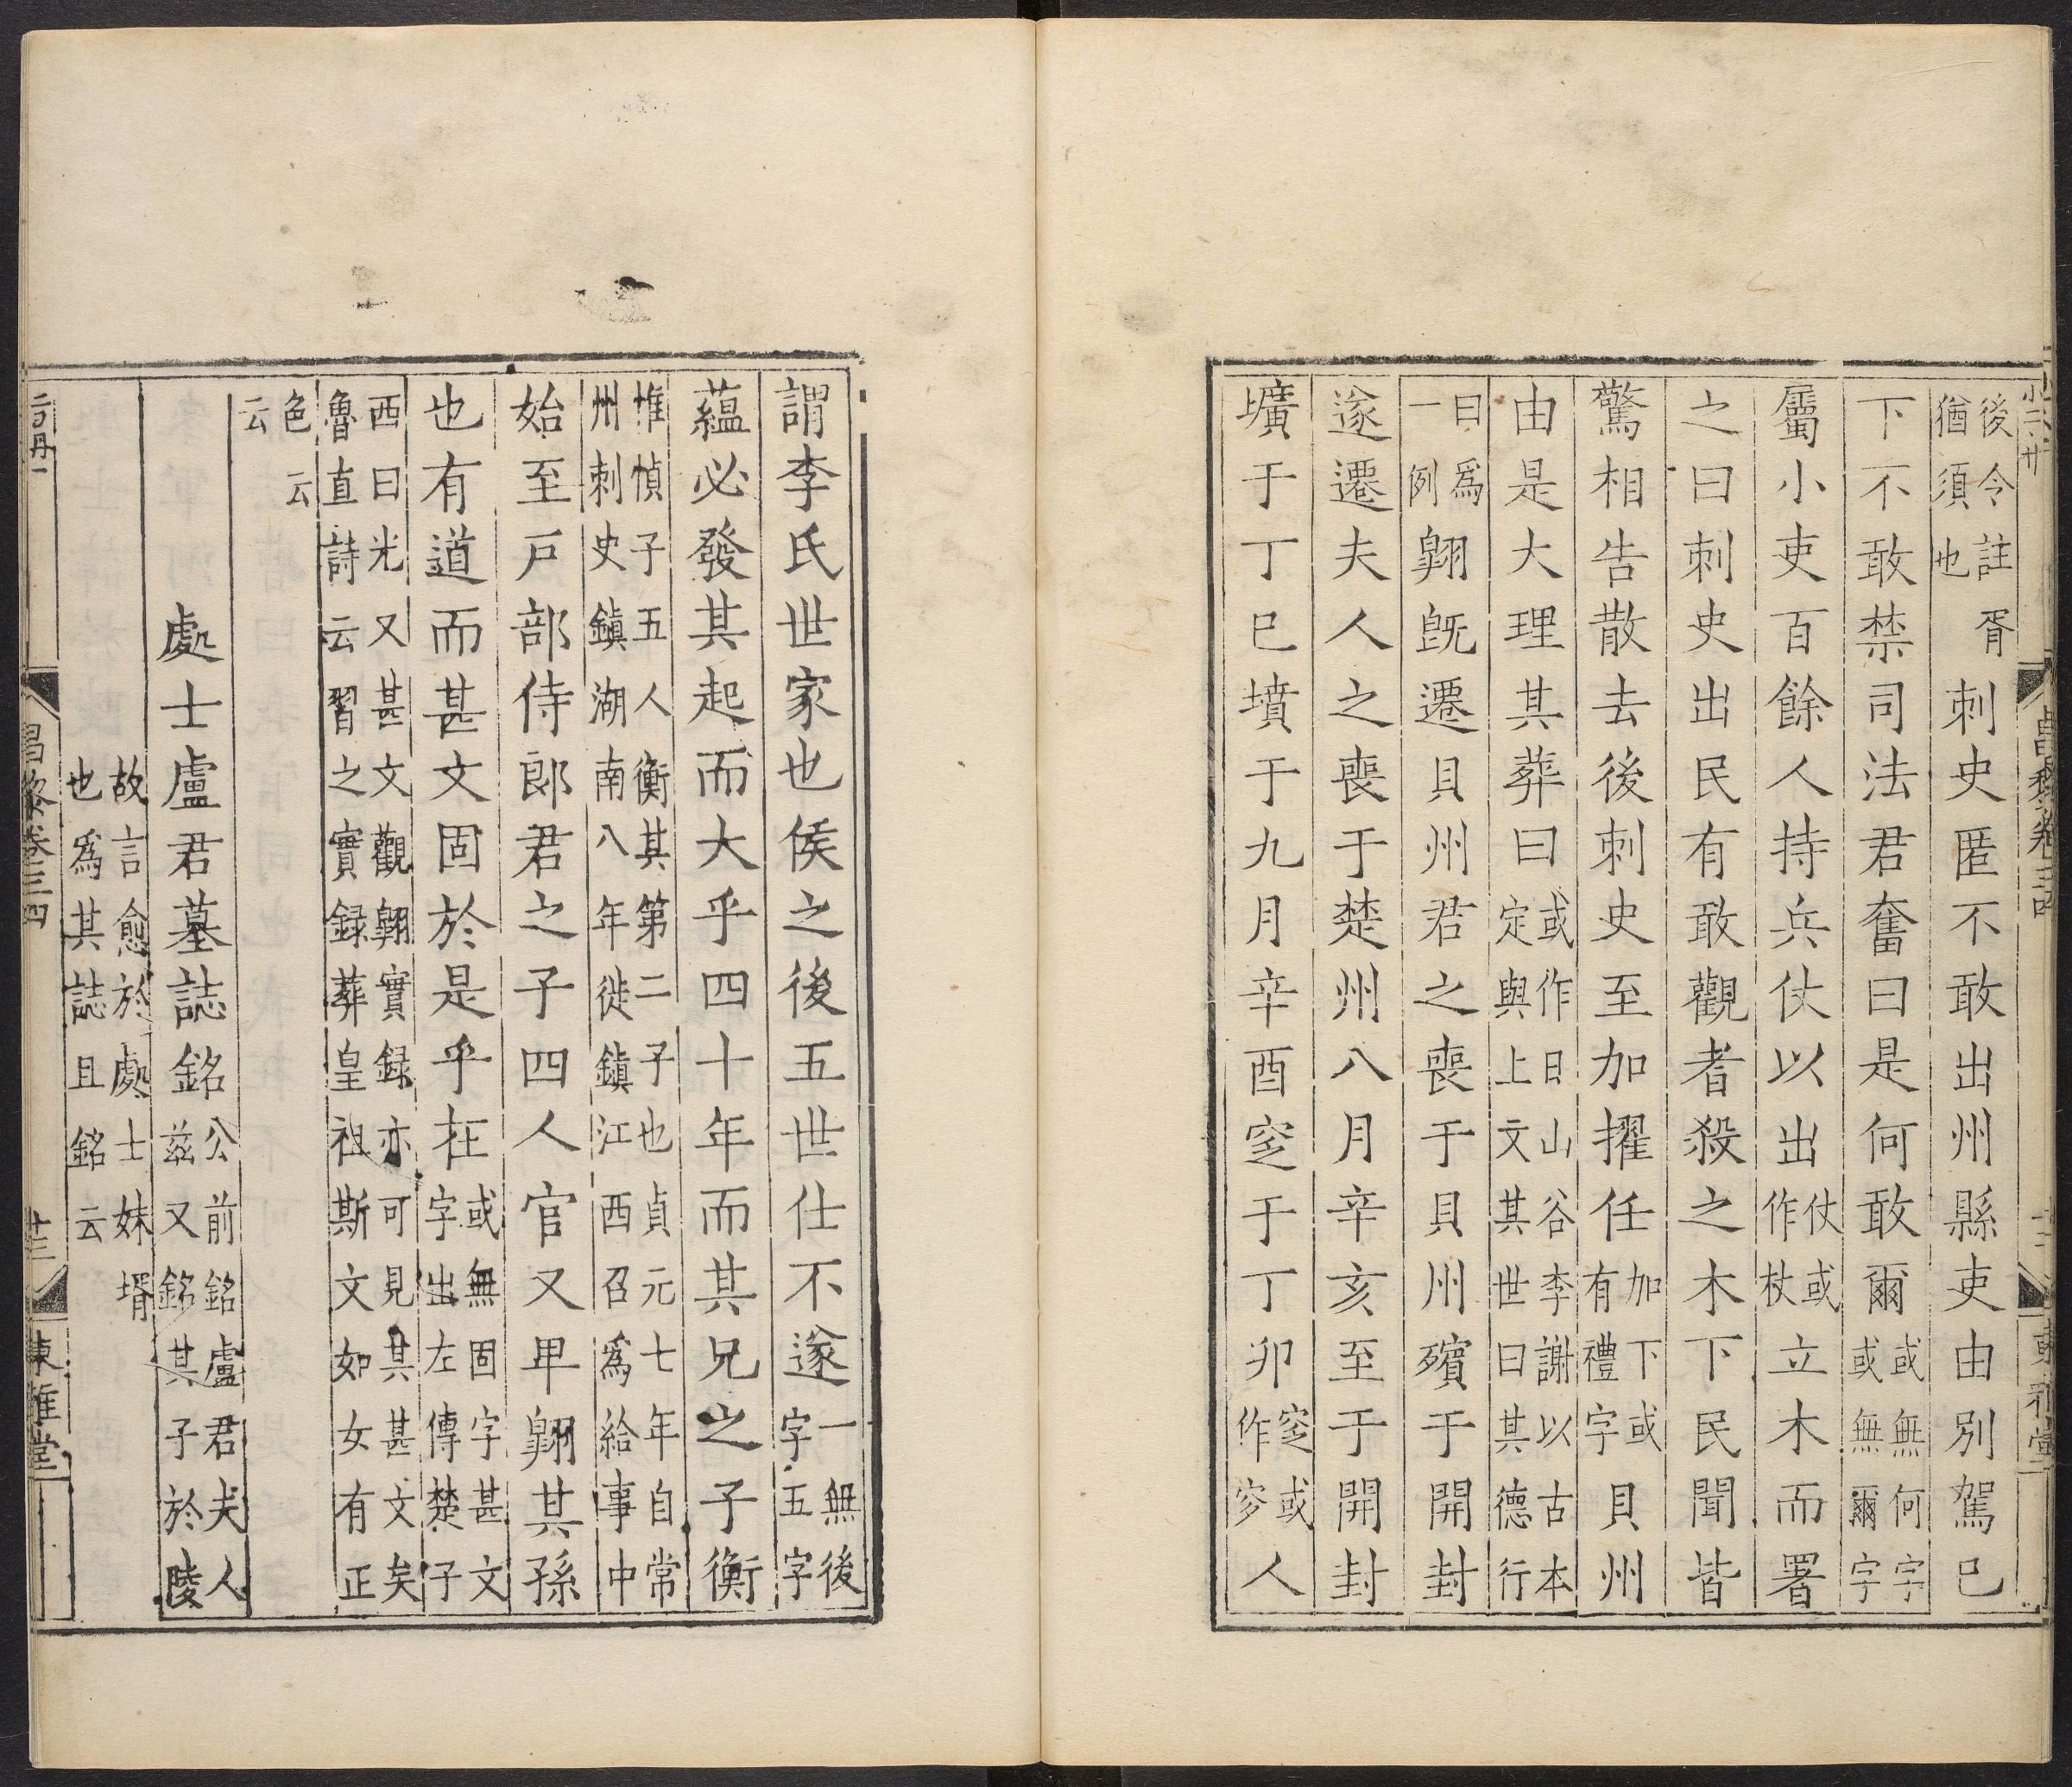 後令註胥
猶須也
刺史匿不敢出州縣吏由別駕已
下不敢禁司法君奮曰是何敢爾
或無何字
或無爾字
屬小吏百餘人持兵仗以出
仗或
作杖
立木而署
之曰刺史出民有敢觀者殺之木下民聞皆
驚相告散去後刺史至加擢任
加下或
有禮字
貝州
由是大理其葬曰
或作日山谷李謝以古本
定與上文其世曰其德行
曰爲
一例
翺旣遷貝州君之喪于貝州殯于開封
遂遷夫人之喪于楚州八月辛亥至于開封
壙于丁巳墳于九月辛酉窆于丁卯
窆或
作穸
人
謂李氏世家也侯之後五世仕不遂
一無後
字五字
蘊必發其起而大乎四十年而其兄之子衡
惟愼子五人衡其第二子也貞元七年自常
州刺史鎭湖南八年徙鎭江西召爲給事中
始至戶部侍郎君之子四人官又卑翺其孫
也有道而甚文固於是乎在
或無固字甚文
字出左傳楚子
西曰光又甚文觀翺實録亦可見其甚文矣
魯直詩云習之實録葬皇祖斯文如女有正
色云
云
處士盧君墓誌銘
公前銘盧君夫人
兹又銘其子於陵
故言愈於處士妹壻
也爲其誌且銘云
昌黎卷三四
廿三
東雅堂